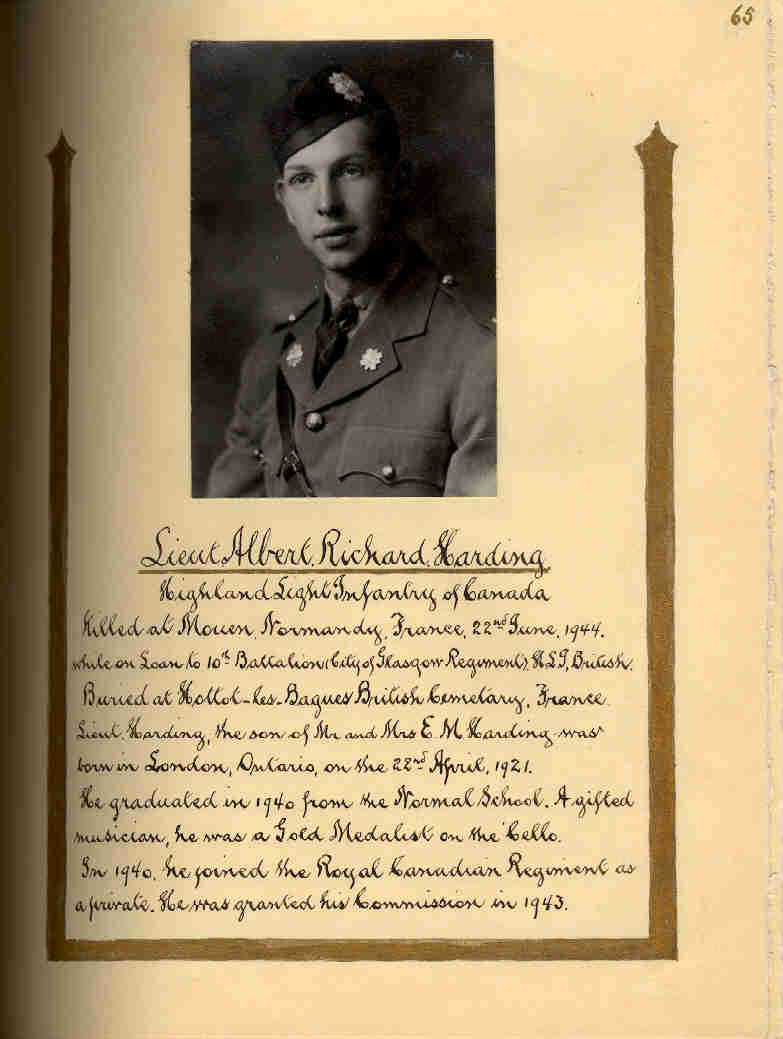 65
Lieut. Albert. Richard. Harding
Highland Light Infantry of Canada
Killed at Mouen, Normandy, France, 22nd June, 1944.
while on Loan to 10th Battalion (City of Glasgow Regiment), H.L.I, British.
Buried at Hottot-les-Bagues British Cemetary, France.
Lieut. Harding, the son of Mr and Mrs E. M. Harding was
born in London, Ontario, on the 22nd April, 1921.
He graduated in 1940 from the Normal School. A gifted
musician, he was a Gold Medalist on the Cello.
In 1940, he joined the Royal Canadian Regiment as
a private. He was granted his Commission in 1943.